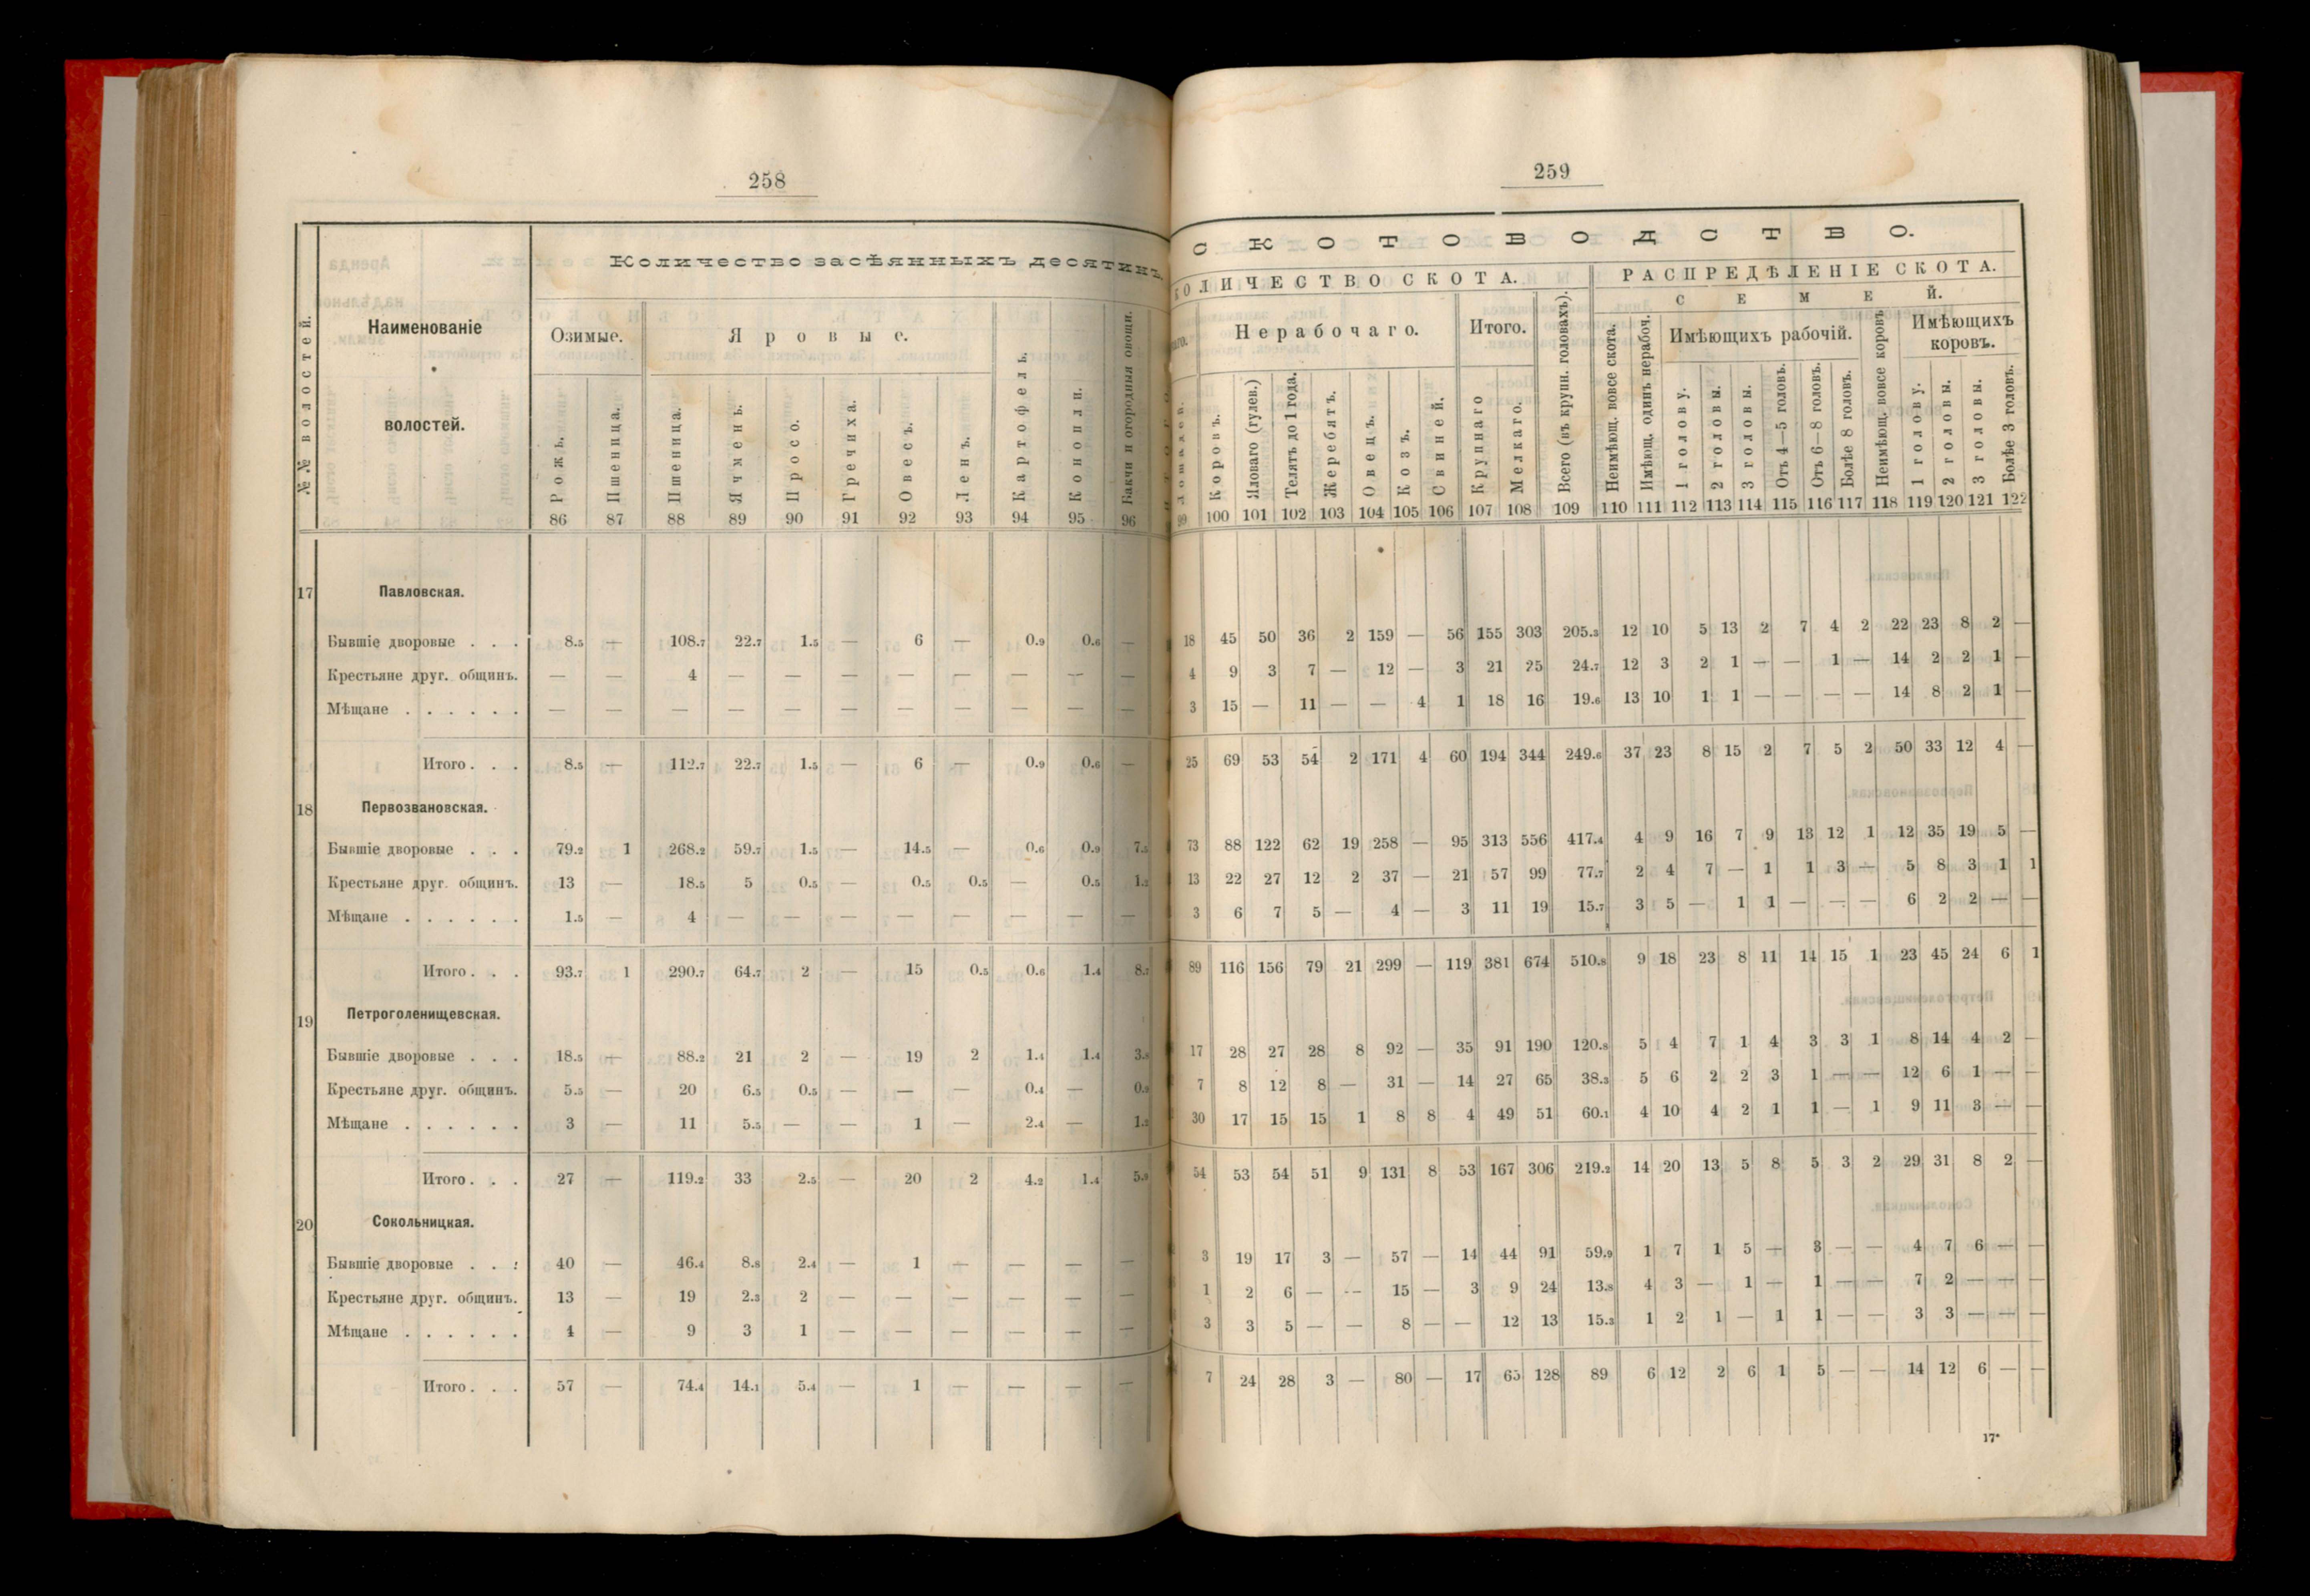 258
№№ волостей.
Наименованіе
волостей.
Количество засѣянныхъ десятинъ.
Озимые.
Яровые.
Рожь. Пшеница. Пшеница. Ячмень. Просо. Гречиха. Овесъ. Ленъ. Картофель. Конопли. Бакчи и огородныя овощи.
86 87 88 89 90 91 92 93 94 95 96
17 Павловская.
Бывшіе дворовые . . . 8.5 — 108.7 22.7 1.5 — 6 — 0.9 0.6 —
Крестьяне друг. общинъ. — — 4 — — — — — — — —
Мѣщане . . . . . . — — — — — — — — — — —
Итого . . . 8.5 — 112.7 22.7 1.5 — 6 — 0.9 0.6 —
18 Первозвановская.
Бывшіе дворовые . . . 79.2 1 268.2 59.7 1.5 — 14.5 — 0.6 0.9
Крестьяне друг. общинъ. 13 — 18.5 5 0.5 — 0.5 0.5 — 0.5
Мѣщане . . . . . . 1.5 — 4 — — — — — — — —
Итого . . . 93.7 1 290.7 64.7 2 — 15 0.5 0.6 1.4
19 Петроголенищевская.
Бывшіе дворовые . . . 18.5 — 88.2 21 2 — 19 2 1.4 1.4
Крестьяне друг. общинъ. 5.5 — 20 6.5 0.5 — — — 0.4 —
Мѣщане . . . . . . 3 — 11 5.5 — — 1 — 2.4 —
Итого . . . 27 — 119.2 33 2.5 — 20 2 4.2 1.4
20 Сокольницкая.
Бывшіе дворовые . . . 40 — 46.4 8.8 2.4 — 1 — — — —
Крестьяне друг. общинъ. 13 — 19 2.3 2 — — — — — —
Мѣщане . . . . . . 4 — 9 3 1 — — — — — —
Итого . . . 57 — 74.4 14.1 5.4 — 1 — — — —
259
СКОТОВОДСТВО.
КОЛИЧЕСТВО СКОТА.
РАСПРЕДѢЛЕНІЕ СКОТА.
СЕМЕЙ.
Нерабочаго.
Итого.
Всего (въ крупн. головахъ).
Имѣющихъ рабочій.
Имѣющихъ коровъ.
Лошадей. Коровъ. Яловаго (гулев.) Телятъ до 1 года. Жеребятъ. Овецъ. Козъ. Свиней. Крупнаго Мелкаго. Неимѣющ. вовсе скота. Имѣющ. одинъ нерабоч. 1 голову. 2 головы. 3 головы. Отъ 4—5 головъ. Отъ 6—8 головъ. Болѣе 8 головъ. Неимѣющ. вовсе коровъ 1 голову. 2 головы. 3 головы. Болѣе 3 головъ.
99 100 101 102 103 104 105 106 107 108 109 110 111 112 113 114 115 116 117 118 119 120 121 122
18 45 50 36 2 159 — 56 155 303 205.3 12 10 5 13 2 7 4 2 22 23 8 2 —
4 9 3 7 — 12 — 3 21 25 24.7 12 3 2 1 — — 1 — 14 2 2 1 —
3 15 — 11 — — 4 1 18 16 19.6 13 10 1 1 — — — — 14 8 2 1 —
25 69 53 54 2 171 4 60 194 344 249.6 37 23 8 15 2 7 5 2 50 33 12 4 —
73 88 122 62 19 258 — 95 313 556 417.4 4 9 16 7 9 13 12 1 12 35 19 5 —
13 22 27 12 2 37 — 21 57 99 77.7 2 4 7 — 1 1 3 — 5 8 3 1 1
3 6 7 5 — 4 — 3 11 19 15.7 3 5 — 1 1 — — — 6 2 2 — —
89 116 156 79 21 299 — 119 381 674 510.8 9 18 23 8 11 14 15 1 23 45 24 6 1
17 28 27 28 8 92 — 35 91 190 120.8 5 4 7 1 4 3 3 1 8 14 4 2 —
7 8 12 8 — 31 — 14 27 65 38.3 5 6 2 2 3 1 — — 12 6 1 — —
30 17 15 15 1 8 8 4 49 51 60.1 4 10 4 2 1 1 — 1 9 11 3 — —
54 53 54 51 9 131 8 53 167 306 219.2 14 20 13 5 8 5 3 2 29 31 8 2 —
3 19 17 3 — 57 — 14 44 91 59.9 1 7 1 5 — 3 — — 4 7 6 — —
1 2 6 — — 15 — 3 9 24 13.8 4 3 — 1 — 1 — — 7 2 — — —
3 3 5 — — 8 — — 12 13 15.3 1 2 1 — 1 1 — — 3 3 — — —
7 24 28 3 — 80 — 17 65 128 89 6 12 2 6 1 5 — — 14 12 6 — —
17*